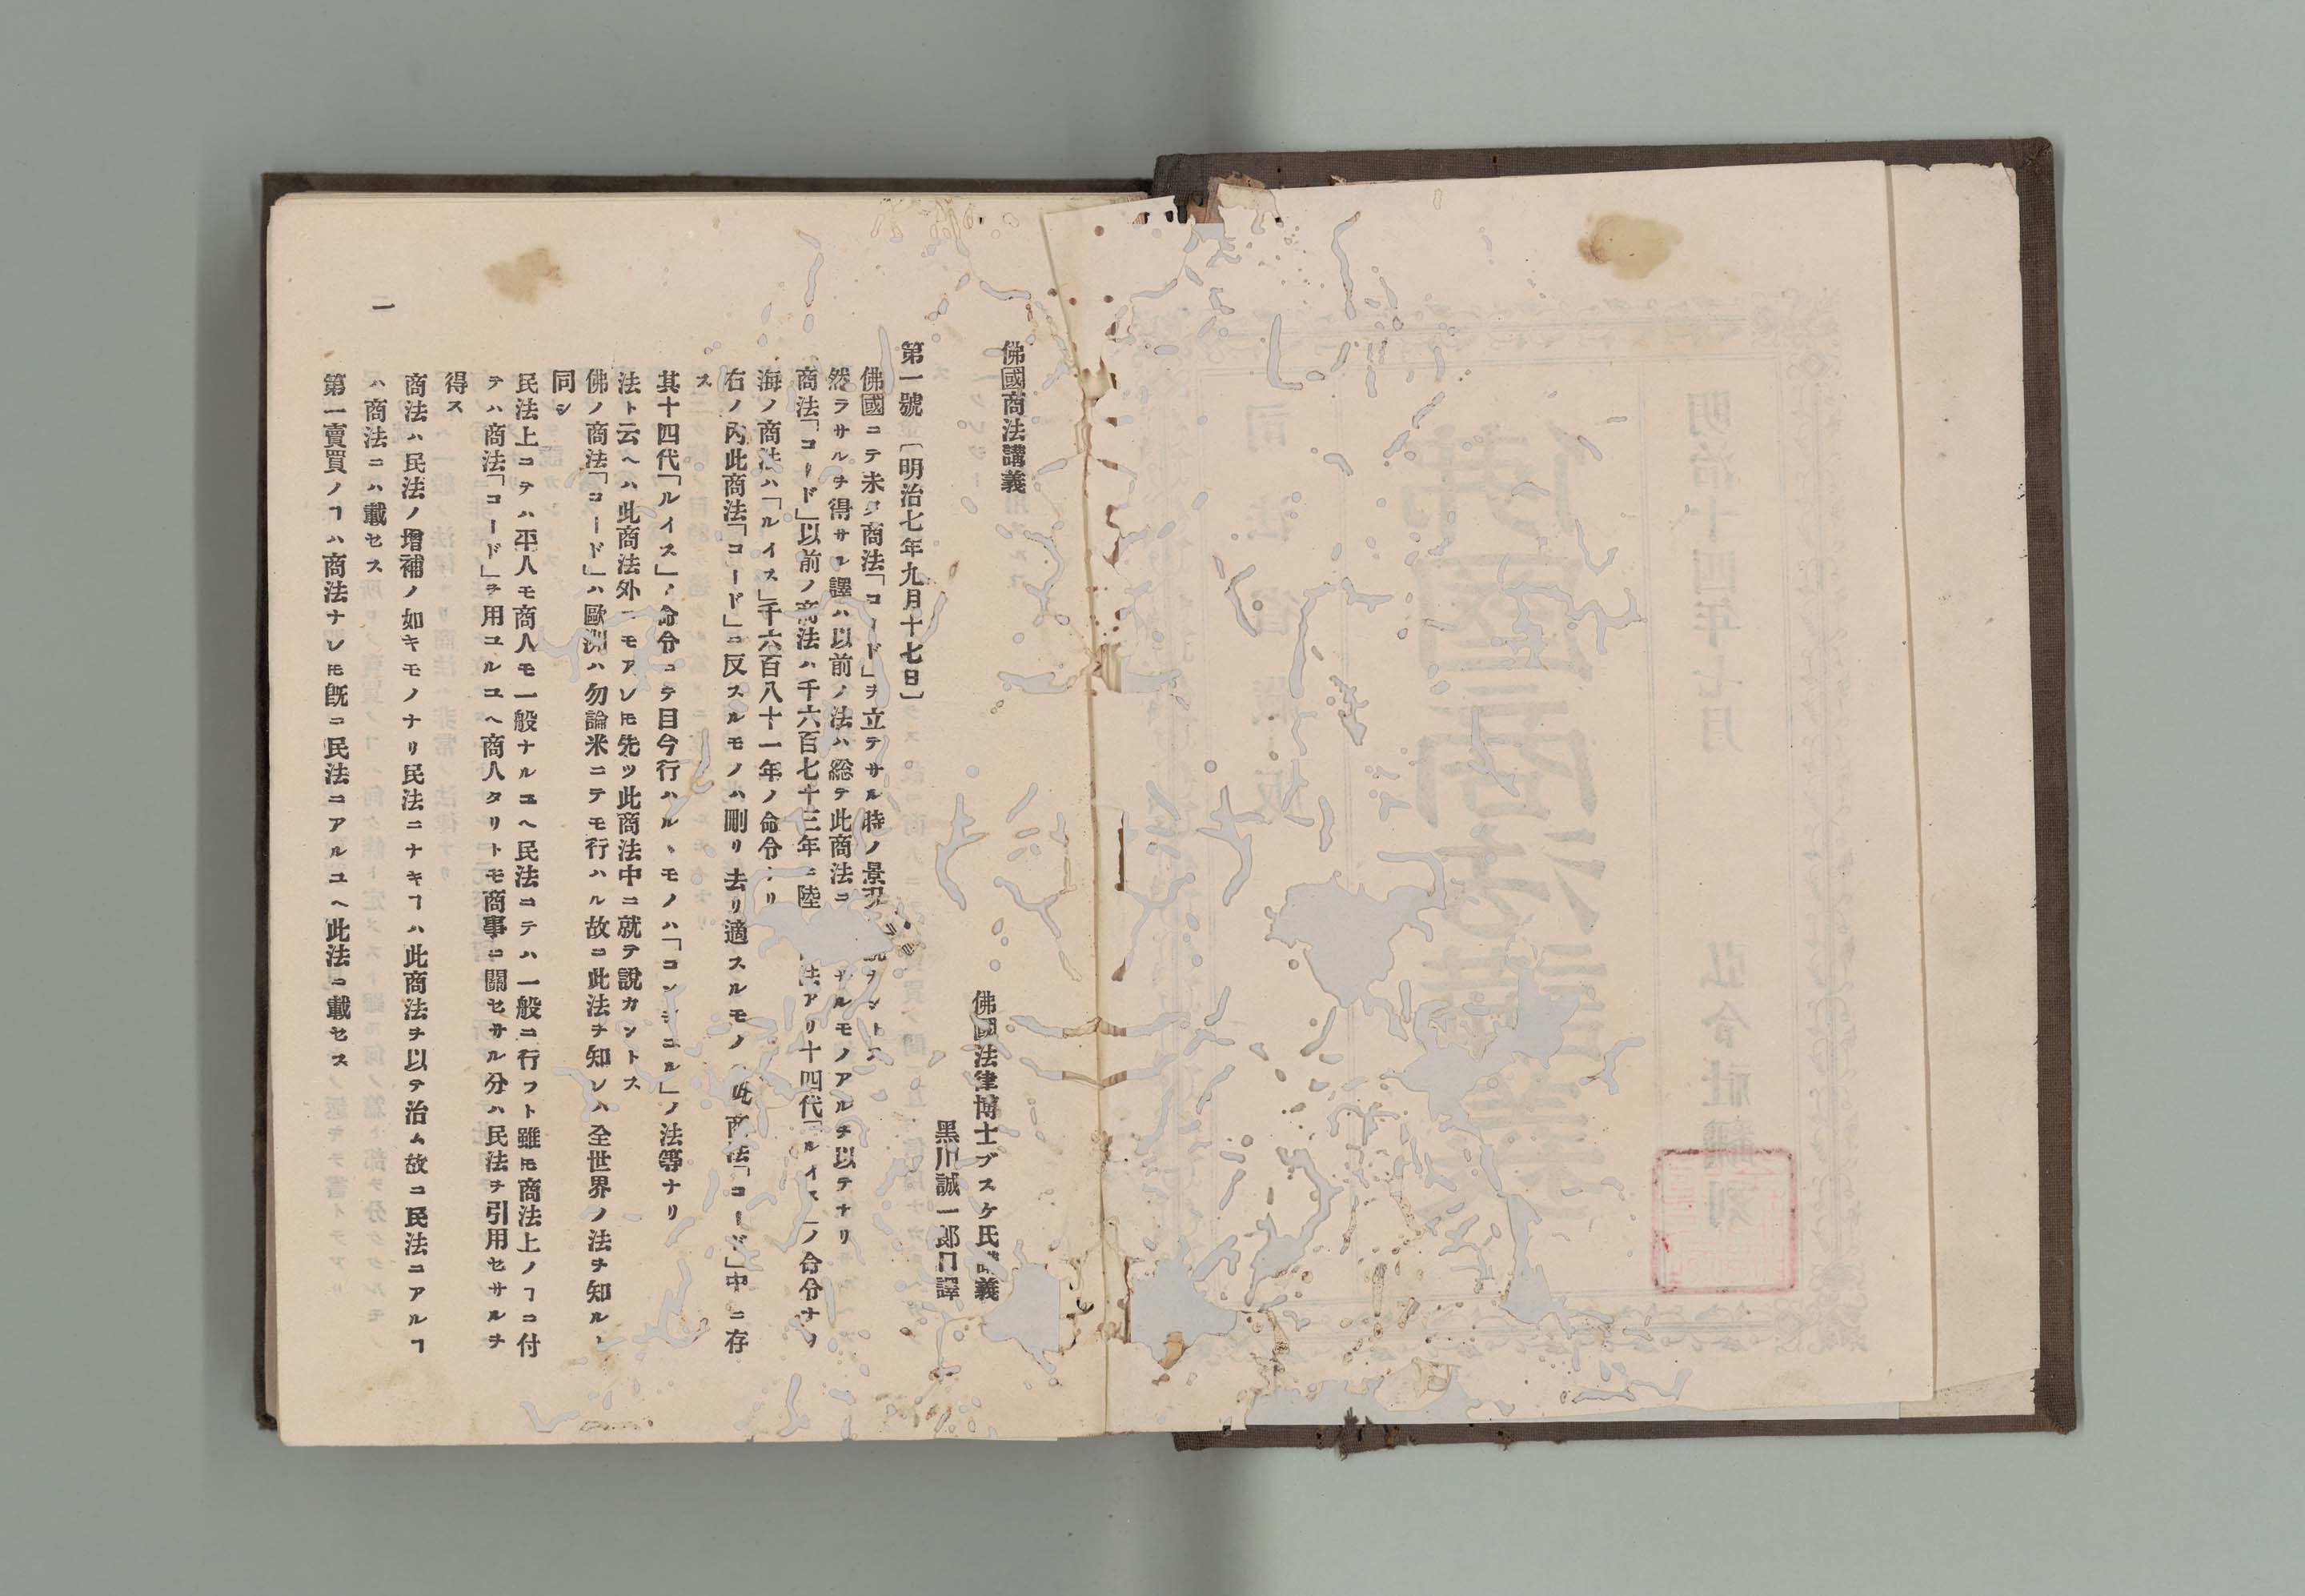 佛國商法講義
佛國法律博士ブスケ氏講義
黑川誠一郎口譯
第一號〔明治七年九月十七日〕
佛國ニテ未タ商法「コード」ヲ立テサル時ノ景況
然ラサルヲ得サル譯ハ以前ノ法ハ総テ此商法ニ ルモノアルヲ以テナリ
商法「コード」以前ノ商法ハ千六百七十三年ニ陸 法アリ十四代「ルイス」ノ命令ナリ
海ノ商法ハ「ルイス」千六百八十一年ノ命令ナリ
右ノ内此商法「コード」ニ反スルモノハ刪リ去リ適スルモノ 既 商法「コード」中ニ存
ス
其十四代「ルイス」ノ命令ニテ目今行ハルヽモノハ「コンシユル」ノ法等ナリ
法ト云ヘハ此商法外ニモアレ𪜈先ツ此商法中ニ就テ說カントス
佛ノ商法「コード」ハ歐洲ハ勿論米ニテモ行ハル故ニ此法ヲ知レハ全世界ノ法ヲ知ルニ
同シ
民法上ニテハ平人モ商人モ一般ナルユヘ民法ニテハ一般ニ行フト雖𪜈商法上ノヿニ付
テハ商法「コード」ヲ用ユルユヘ商人タリトモ商事ニ關セサル分ハ民法ヲ引用セサルヲ
得ス
商法ハ民法ノ增補ノ如キモノナリ民法ニナキヿハ此商法ヲ以テ治ム故ニ民法ニアルヿ
ハ商法ニハ載セス
第一賣買ノヿハ商法ナレ𪜈旣ニ民法ニアルユヘ此法ニ載セス
一
明治十四年七月 弘令社飜刻
佛國商法講義
司法省藏版